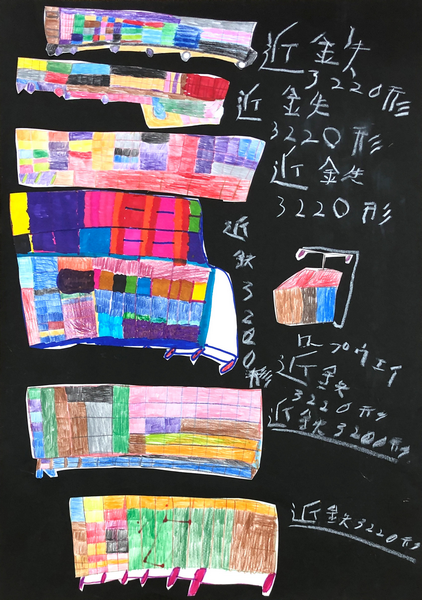 近鉄
3220形
近鉄
3220形
近鉄
3220形
近鉄3220形
ロープウェイ
近鉄
3220形
近鉄3200形
近鉄3220形